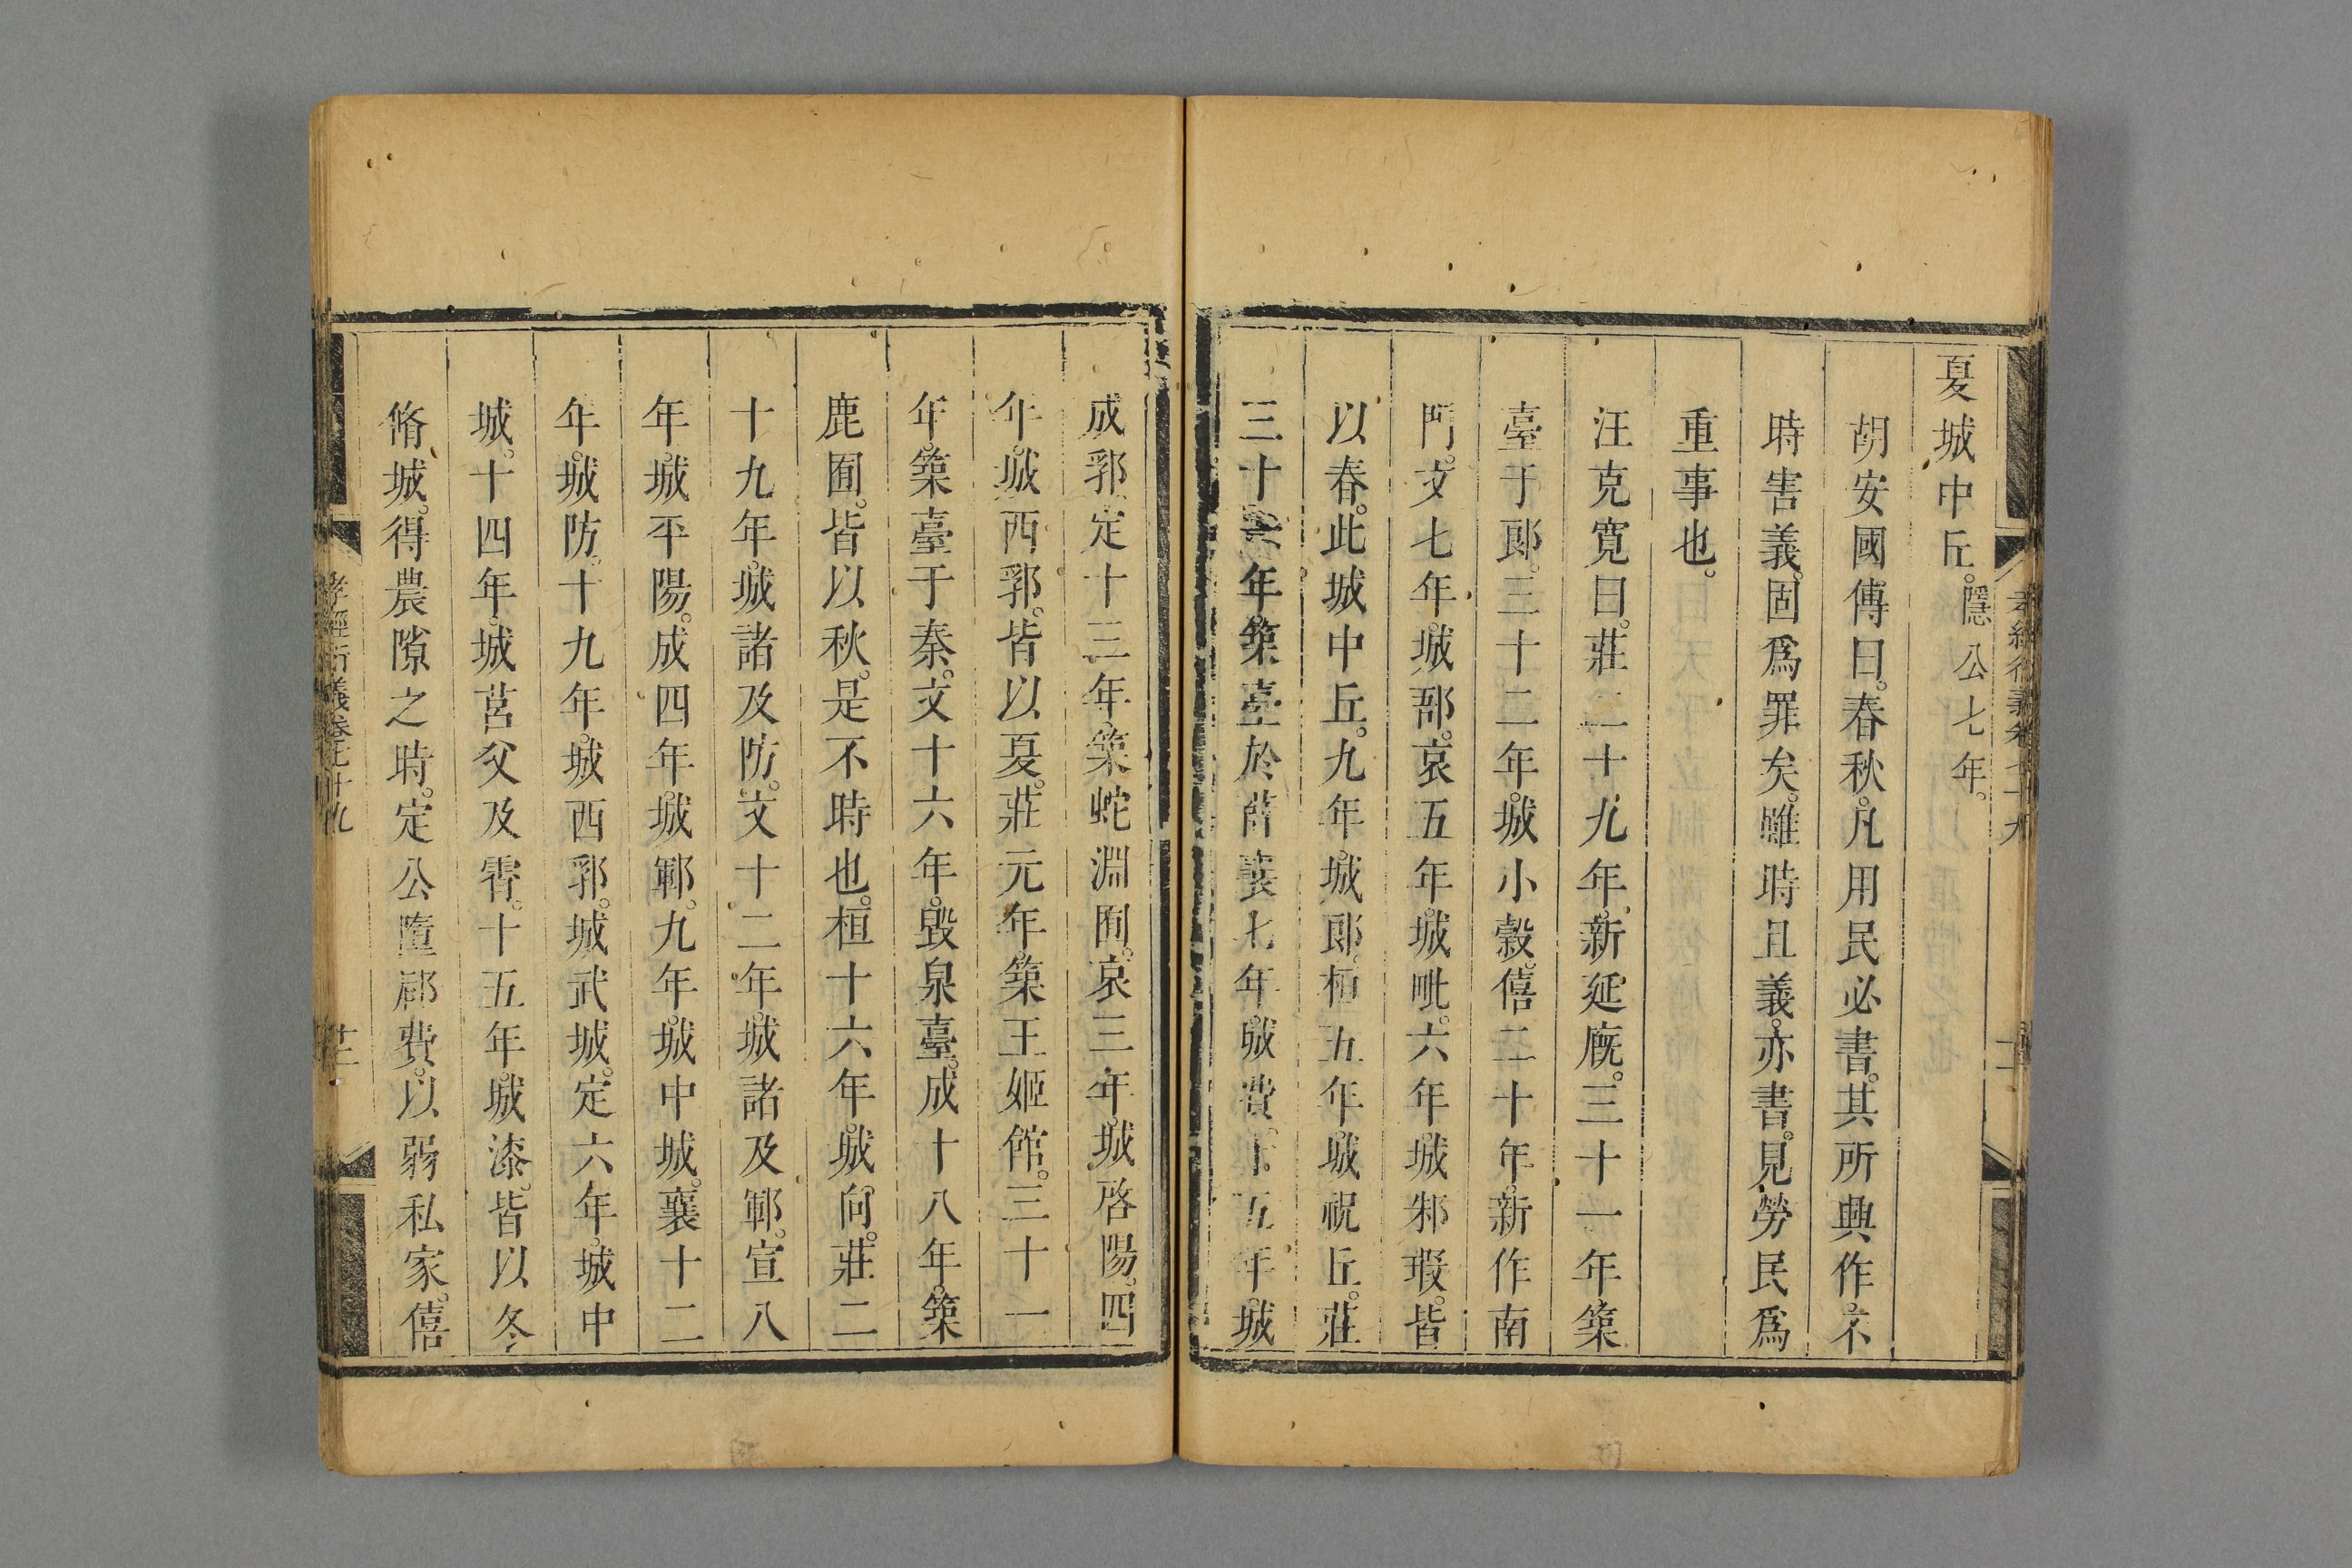 夏城中丘。隱公七年。
胡安國傳曰。春秋。凡用民必書。其所興作。不
時害義。固爲罪矣。雖時且義。亦書。見勞民爲
重事也。
汪克寬曰。莊二十九年。新延廐。三十一年築
臺于郞。三十二年。城小穀。僖二十年。新作南
門。文七年。城郚。哀五年。城毗。六年。城邾瑕。皆
以春。此城中丘。九年。城郞。桓五年。城祝丘。莊
三十年。築臺於薛。襄七年。城費。十五年。城
成郛。定十三年。築蛇淵囿。哀三年。城啓陽。四
年。城西郛。皆以夏。莊元年。築王姬館。三十一
年。築臺于秦。文十六年。毀泉臺。成十八年。築
鹿囿。皆以秋。是不時也。桓十六年。城向。莊二
十九年。城諸及防。文十二年。城諸及鄆。宣八
年。城平陽。成四年。城鄆。九年。城中城。襄十二
年。城防。十九年。城西郛。城武城。定六年。城中
城。十四年。城莒父及霄。十五年。城漆。皆以冬。
脩城。得農隙之時。定公墮郈費。以弱私家。僖
孝經衍義卷七十九